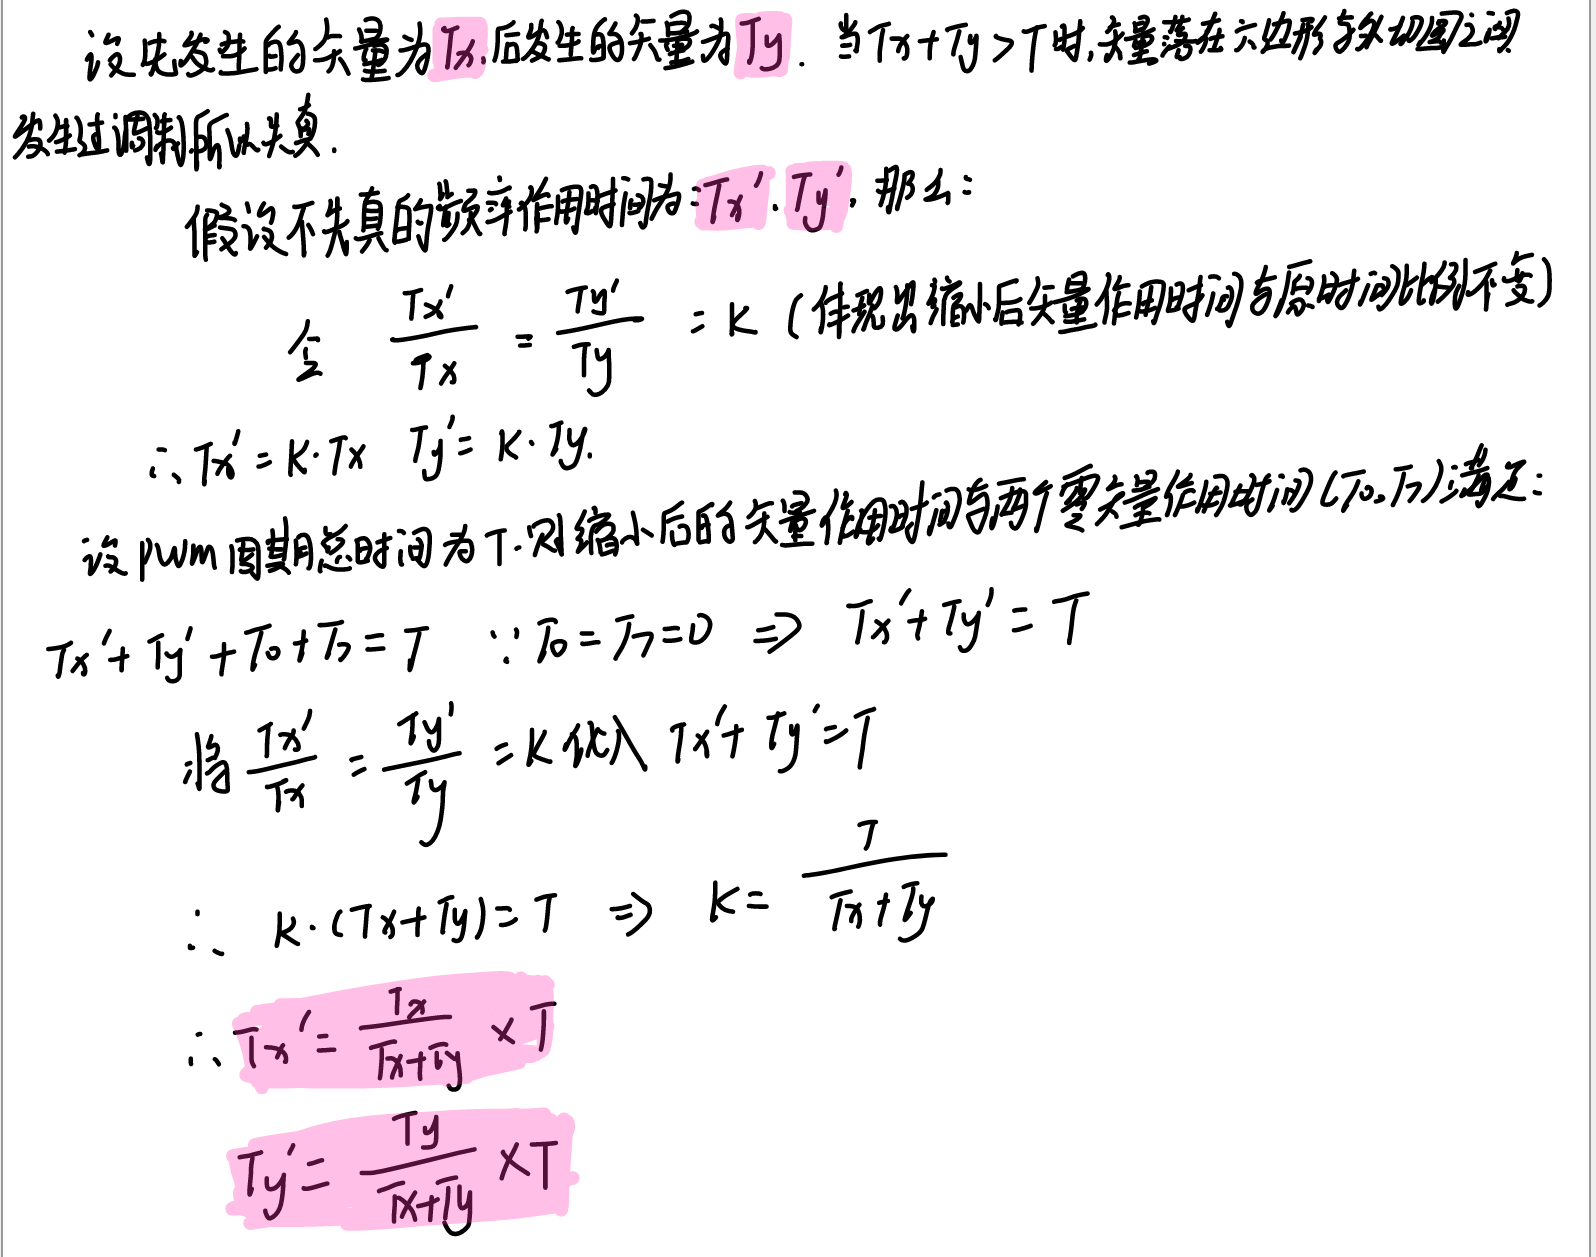 设先发生的矢量为Tx,后发生的矢量为Ty. 当Tx+Ty>T时,矢量落在六边形与外切圆之间
发生过调制所以失真.
假设不失真的频率作用时间为:Tx'、Ty',那么:
令 Tx'/Tx = Ty'/Ty = K (体现出缩小后矢量作用时间与原时间比例不变)
∴ Tx'=K·Tx Ty'=K·Ty.
设pwm周期总时间为T.则缩小后的矢量作用时间与两个零矢量作用时间(T0、T7)满足:
Tx'+Ty'+T0+T7=T ∵T0=T7=0 ⇒ Tx'+Ty'=T
将 Tx'/Tx = Ty'/Ty =K代入 Tx'+Ty'=T
∴ K·(Tx+Ty)=T ⇒ K= T/(Tx+Ty)
∴ Tx'= Tx/(Tx+Ty) ×T
Ty'= Ty/(Tx+Ty) ×T